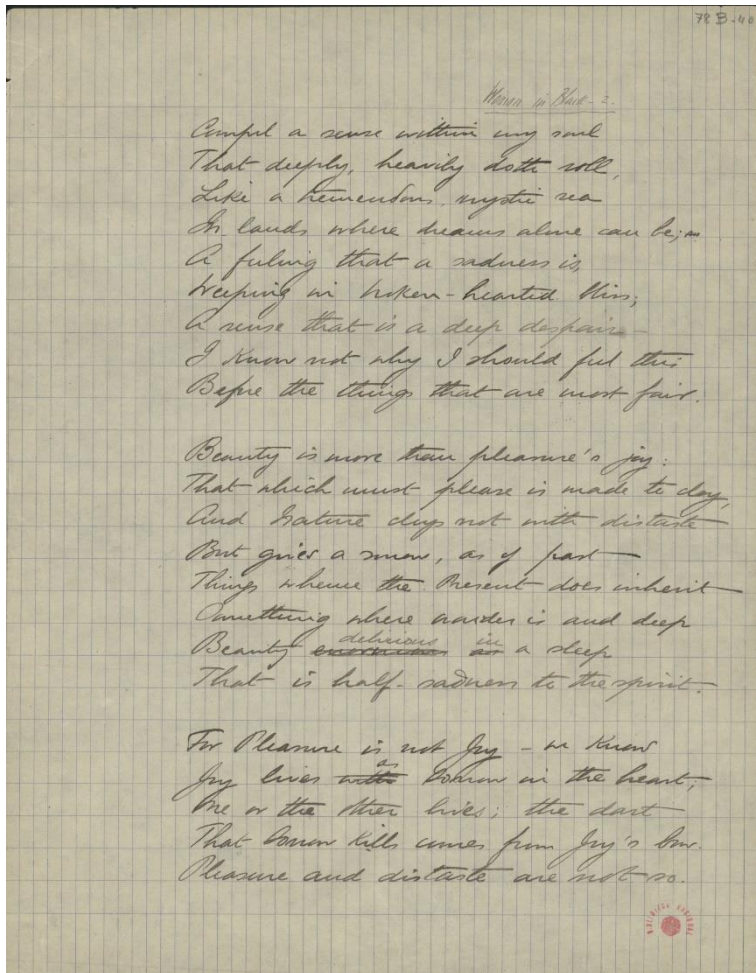 78B-40
Woman in Black - 2.
Compel a sense within my soul
That deeply, heavily doth roll,
Like a tremendous, mystic sea
In lands where dreams alone can be; —
A feeling that a sadness is,
Weeping in broken-hearted bliss;
A sense that is a deep despair —
I know not why I should feel this
Before the things that are most fair.
Beauty is more than pleasure's joy:
That which must please is made to cloy,
And Nature cloys not with distaste
But gives a sorrow, as of past
Things whence the Present does inherit
Something where wonder is and deep
Beauty delirious in a sleep
That is half-sadness to the spirit.
For Pleasure is not Joy - we know
Joy lives as Sorrow in the heart;
One or the other lives; the dart
That Sorrow kills comes from Joy's bow.
Pleasure and distaste are not so.
BIBLIOTECA NACIONAL